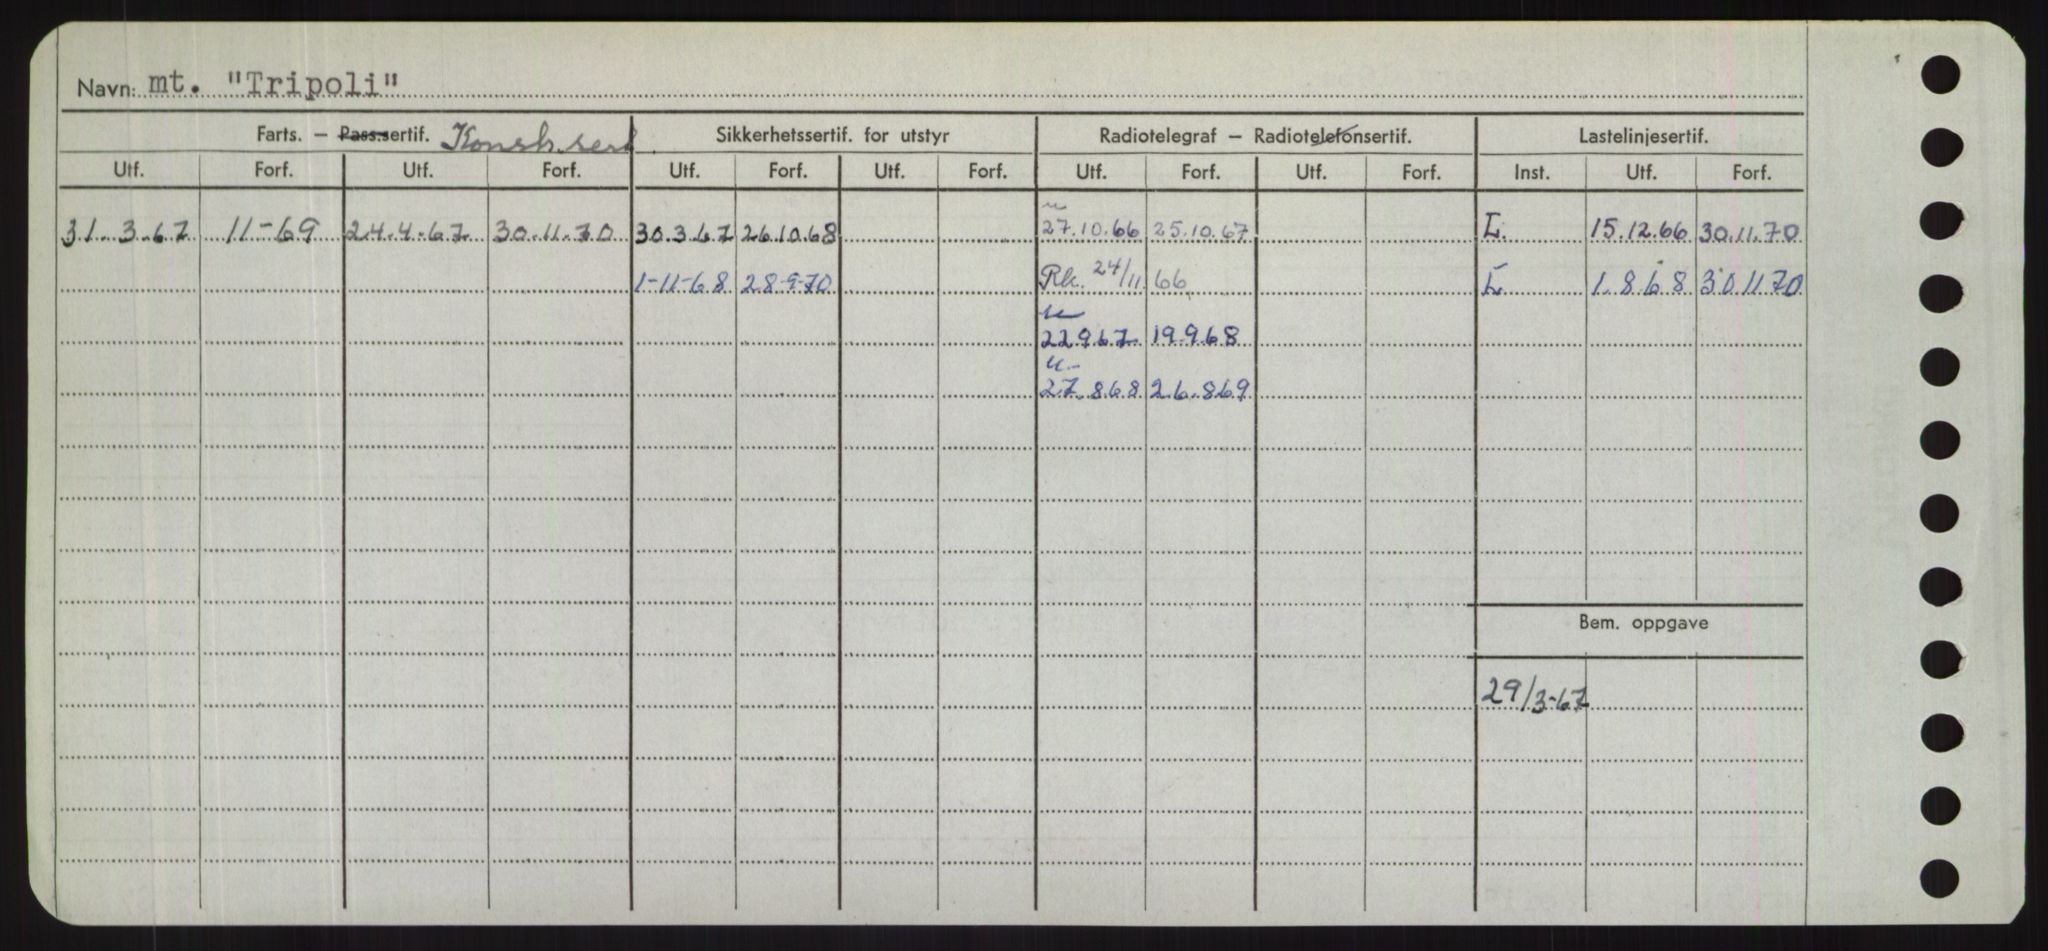 Navn: mt. "Tripoli"
Farts. – Pass.sertif. Konstr.sert. Sikkerhetssertif. for utstyr Radiotelegraf – Radiotelefonsertif. Lastelinjesertif.
Utf. Forf. Utf. Forf. Utf. Forf. Utf. Forf. Utf. Forf. Utf. Forf. Inst. Utf. Forf.
u
31.3.67 11-69 24.4.67 30.11.70 30.3.67 26.10.68 27.10.66 25.10.67 L. 15.12.66 30.11.70
1-11-68 28-9-70 Rk. 24/11.66 L 1.8.68 30.11.70
u
22.9.67 19.9.68
u.
27.8.68 26.8.69
Bem. oppgave
29/3-67